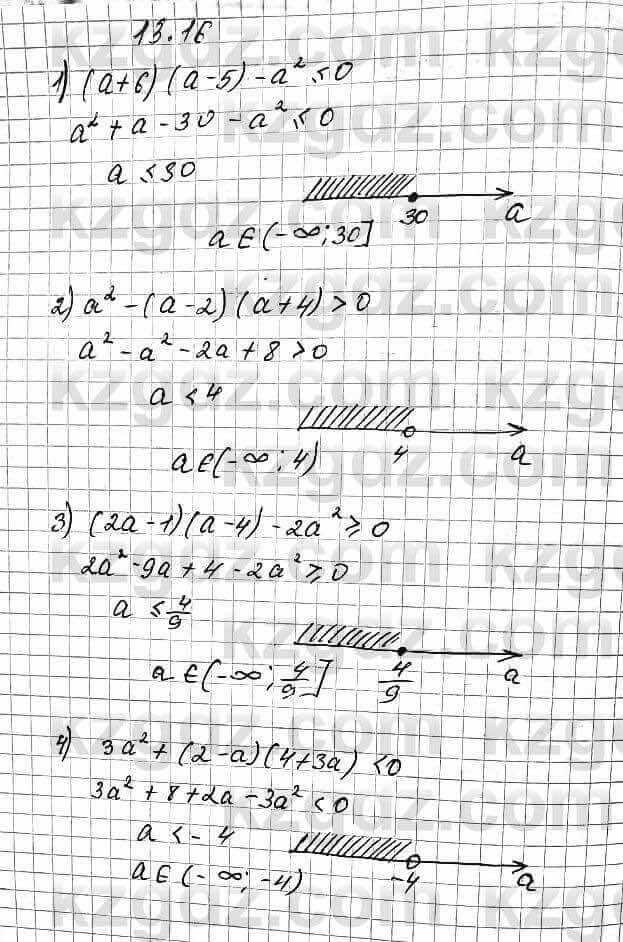 13.16
1) (a+6)(a-5)-a² ≤ 0
a²+a-30-a² ≤ 0
a ≤ 30
30 a
a ∈ (-∞; 30]
2) a²-(a-2)(a+4) > 0
a²-a²-2a+8 > 0
a < 4
4 a
a ∈ (-∞; 4)
3) (2a-1)(a-4)-2a² ≥ 0
2a²-9a+4-2a² ≥ 0
a ≤ 4/9
4/9 a
a ∈ (-∞; 4/9]
4) 3a²+(2-a)(4+3a) < 0
3a²+8+2a-3a² < 0
a < -4
-4 a
a ∈ (-∞; -4)
kzgdz.com